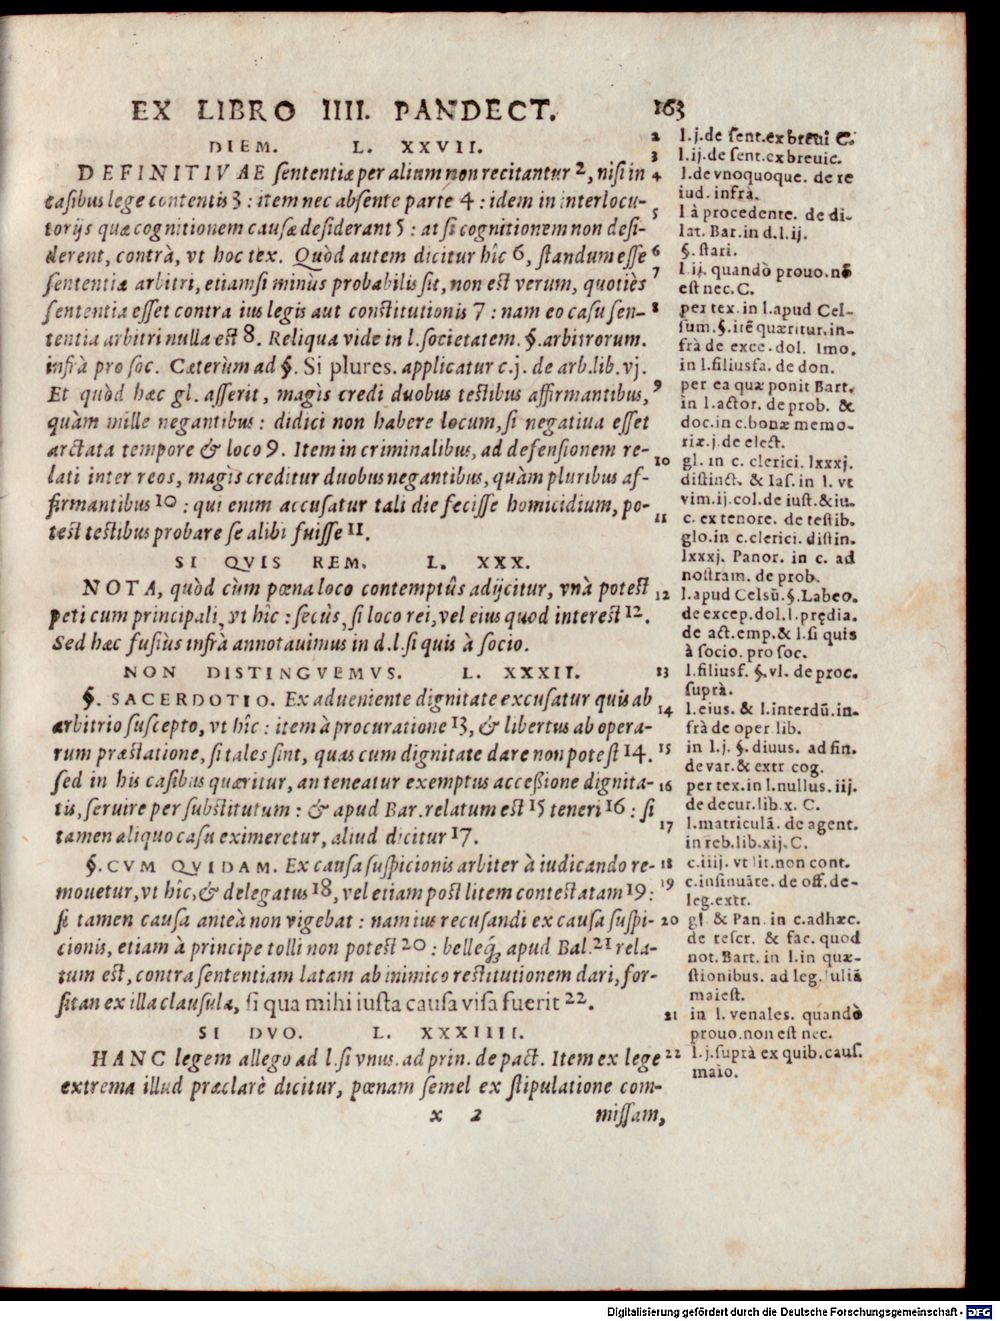 EX LIBRO IIII. PANDECT. 163
DIEM. L. XXVII.
DEFINITIVAE sententiæ per alium non recitantur 2, nisi in
casibus lege contentis 3 : item nec absente parte 4 : idem in interlocu-
torijs quæ cognitionem causæ desiderant 5 : at si cognitionem non desi-
derent, contrà, vt hoc tex. Quòd autem dicitur hîc 6, standum esse
sententiæ arbitri, etiamsi minùs probabilis sit, non est verum, quotiès
sententia esset contra ius legis aut constitutionis 7 : nam eo casu sen-
tentia arbitri nulla est 8. Reliqua vide in l. societatem. §. arbitrorum.
infrà pro soc. Cæterùm ad §. Si plures. applicatur c.j. de arb. lib. vj.
Et quòd hæc gl. asserit, magis credi duobus testibus affirmantibus,
quàm mille negantibus : didici non habere locum, si negatiua esset
arctata tempore & loco 9. Item in criminalibus, ad defensionem re-
lati inter reos, magis creditur duobus negantibus, quàm pluribus af-
firmantibus 10 : qui enim accusatur tali die fecisse homicidium, po-
test testibus probare se alibi fuisse 11.
SI QVIS REM. L. XXX.
NOTA, quòd cùm pœna loco contemptûs adijcitur, vnà potest
peti cum principali, vt hîc : secùs, si loco rei, vel eius quod interest 12.
Sed hæc fusiùs infrà annotauimus in d.l. si quis à socio.
NON DISTINGVEMVS. L. XXXII.
§. SACERDOTIO. Ex adueniente dignitate excusatur quis ab
arbitrio suscepto, vt hîc : item à procuratione 13, & libertus ab opera-
rum præstatione, si tales sint, quas cum dignitate dare non potest 14.
sed in his casibus quæritur, an teneatur exemptus accessione dignita-
tis, seruire per substitutum : & apud Bar. relatum est 15 teneri 16 : si
tamen aliquo casu eximeretur, aliud dicitur 17.
§. CVM QVIDAM. Ex causa suspicionis arbiter à iudicando re-
mouetur, vt hîc, & delegatus 18, vel etiam post litem contestatam 19 :
si tamen causa anteà non vigebat : nam ius recusandi ex causa suspi-
cionis, etiam à principe tolli non potest 20 : belleq́; apud Bal. 21 rela-
tum est, contra sententiam latam ab inimico restitutionem dari, for-
sitan ex illa clausula, si qua mihi iusta causa visa fuerit 22.
SI DVO. L. XXXIIII.
HANC legem allego ad l. si vnus. ad prin. de pact. Item ex lege
extrema illud præclarè dicitur, pœnam semel ex stipulatione com-
x 2 missam,
2 l.j. de sent. ex breui C.
3 l.ij. de sent. ex breuic.
4 l. de vnoquoque. de re
iud. infrà.
5 l à procedente. de di-
lat. Bar. in d. l. ij.
6 §. stari.
7 l.ij. quandò prouo. nō
est nec. C.
8 per tex. in l. apud Cel-
sum. §. itē quæritur. in-
frà de exce. dol. Imo.
in l. filiusfa. de don.
9 per ea quæ ponit Bart.
in l. actor. de prob. &
doc. in c. bonæ memo-
riæ. j. de elect.
10 gl. in c. clerici. lxxxj.
distinct. & Ias. in l. vt
vim. ij. col. de iust. & iu.
11 c. ex tenore. de testib.
glo. in c. clerici. distin.
lxxxj. Panor. in c. ad
nostram. de prob.
12 l. apud Celsū. §. Labeo.
de excep. dol. l. prędia.
de act. emp. & l. si quis
à socio. pro soc.
13 l. filiusf. §. vl. de proc.
suprà.
14 l. eius. & l. interdū. in-
frà de oper. lib.
15 in l.j. §. diuus. ad fin.
de var. & extr. cog.
16 per tex. in l. nullus. iij.
de decur. lib. x. C.
17 l. matriculā. de agent.
in reb. lib. xij. C.
18 c. iiij. vt lit. non cont.
19 c. insinuāte. de off. de-
leg. extr.
20 gl. & Pan. in c. adhæc.
de rescr. & fac. quod
not. Bart. in l. in quæ-
stionibus. ad leg. Iuliā
maiest.
21 in l. venales. quandò
prouo. non est nec.
22 l.j. suprà ex quib. caus.
maio.
Digitalisierung gefördert durch die Deutsche Forschungsgemeinschaft - DFG